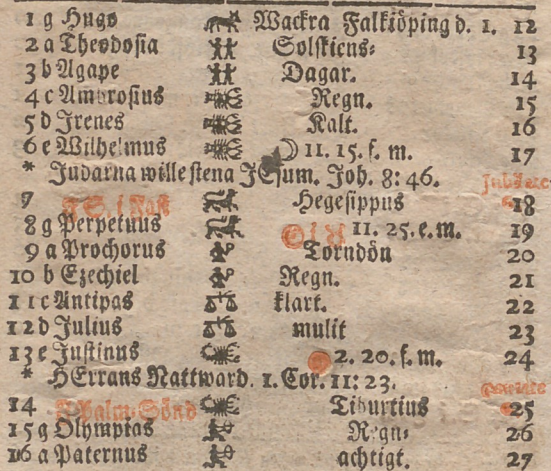 1 g Hugo Wackra Falkiöping d. 1. 12
2 a Theodosia Solskiens- 13
3 b Agape Dagar. 14
4 c Ambrosius Regn. 15
5 d Irenes Kalt. 16
6 e Wilhelmus ☽ 11. 15. f. m. 17
* Judarna wille stena JEsum. Joh. 8: 46.
7 Hegesippus 18
8 g Perpetuus 11. 25. e. m. 19
9 a Prochorus Torndön 20
10 b Ezechiel Regn. 21
11 c Antipas klart. 22
12 d Julius mulit 23
13 e Justinus 2. 20. f. m. 24
* HErrans Nattward. 1. Cor. 11: 23.
14 Palm-Sönd Tiburtius 25
15 g Olympias Regn- 26
16 a Paternus achtigt. 27